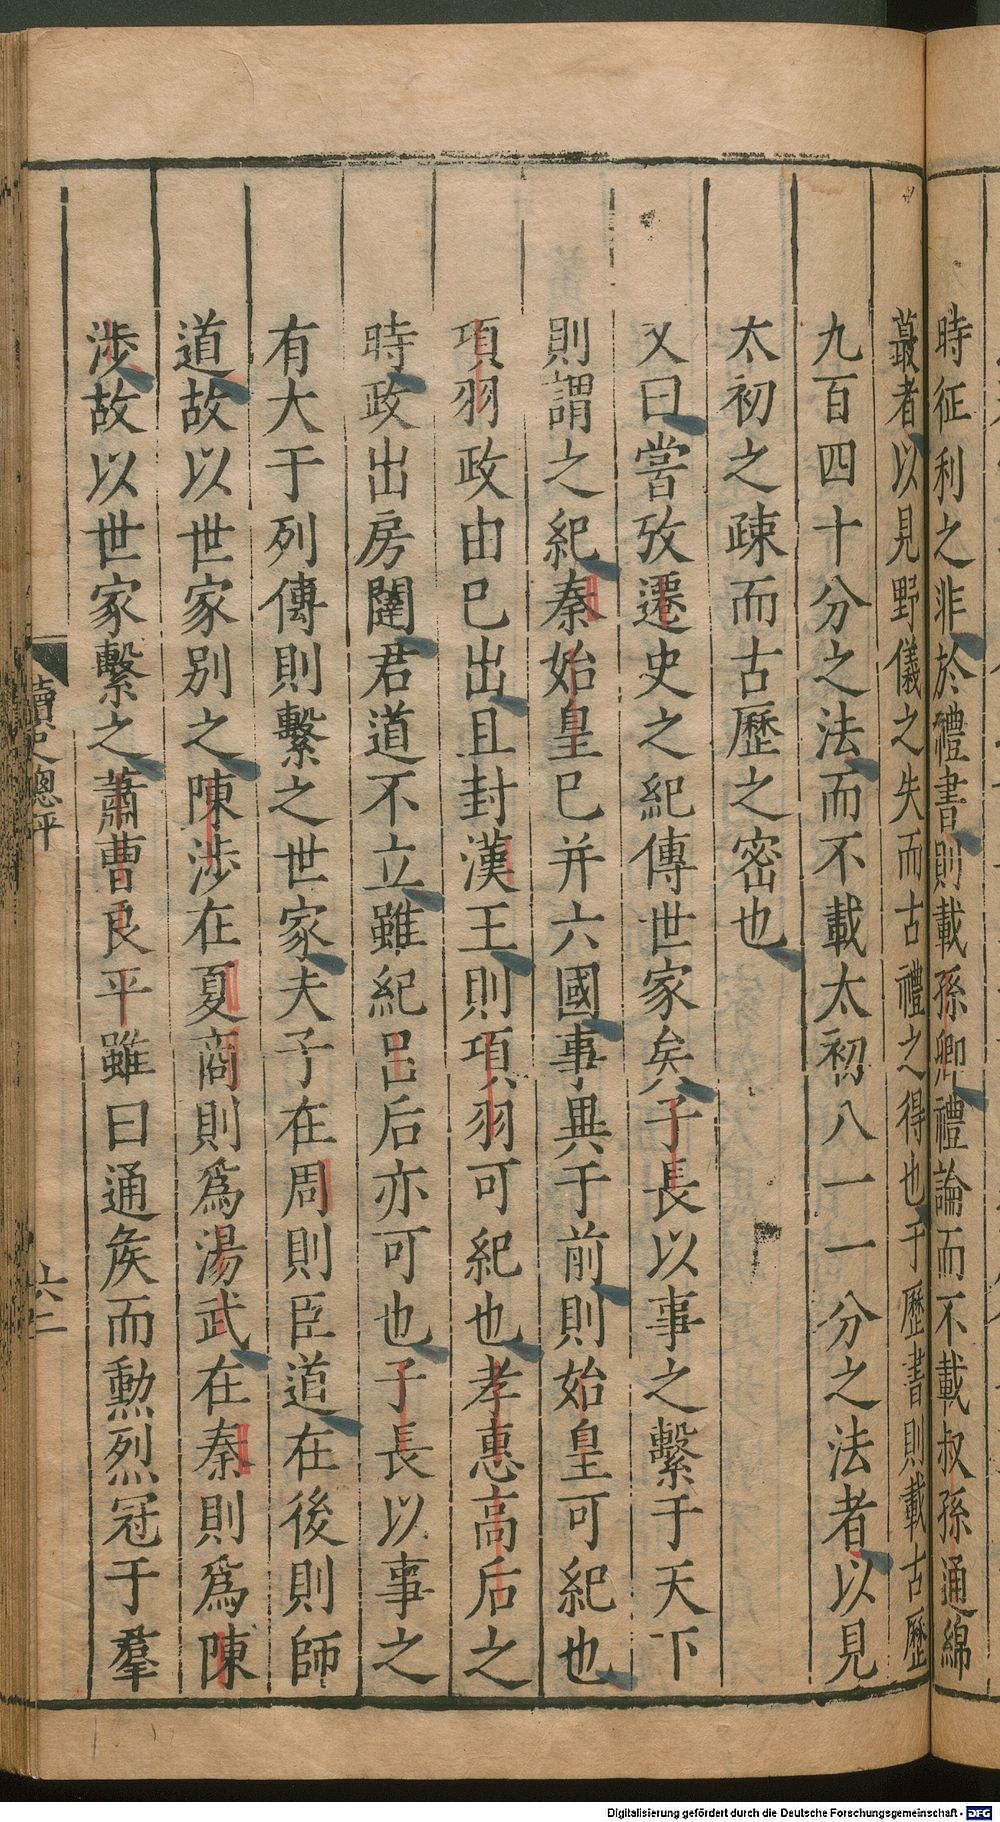 時征利之非於禮書則載孫卿禮論而不載叔孫通綿
蕞者以見野儀之失而古禮之得也于歷書則載古歷
九百四十分之法而不載太初八一一分之法者以見
太初之疎而古歷之密也
又曰嘗攷遷史之紀傳世家矣子長以事之繫于天下
則謂之紀秦始皇已并六國事異于前則始皇可紀也
項羽政由已出且封漢王則項羽可紀也孝惠高后之
時政出房闥君道不立雖紀呂后亦可也子長以事之
有大于列傳則繫之世家夫子在周則臣道在後則師
道故以世家別之陳涉在夏商則爲湯武在秦則爲陳
涉故以世家繫之蕭曹良平雖曰通矦而勲烈冠于羣
讀史總評
六二
Digitalisierung gefördert durch die Deutsche Forschungsgemeinschaft - DFG